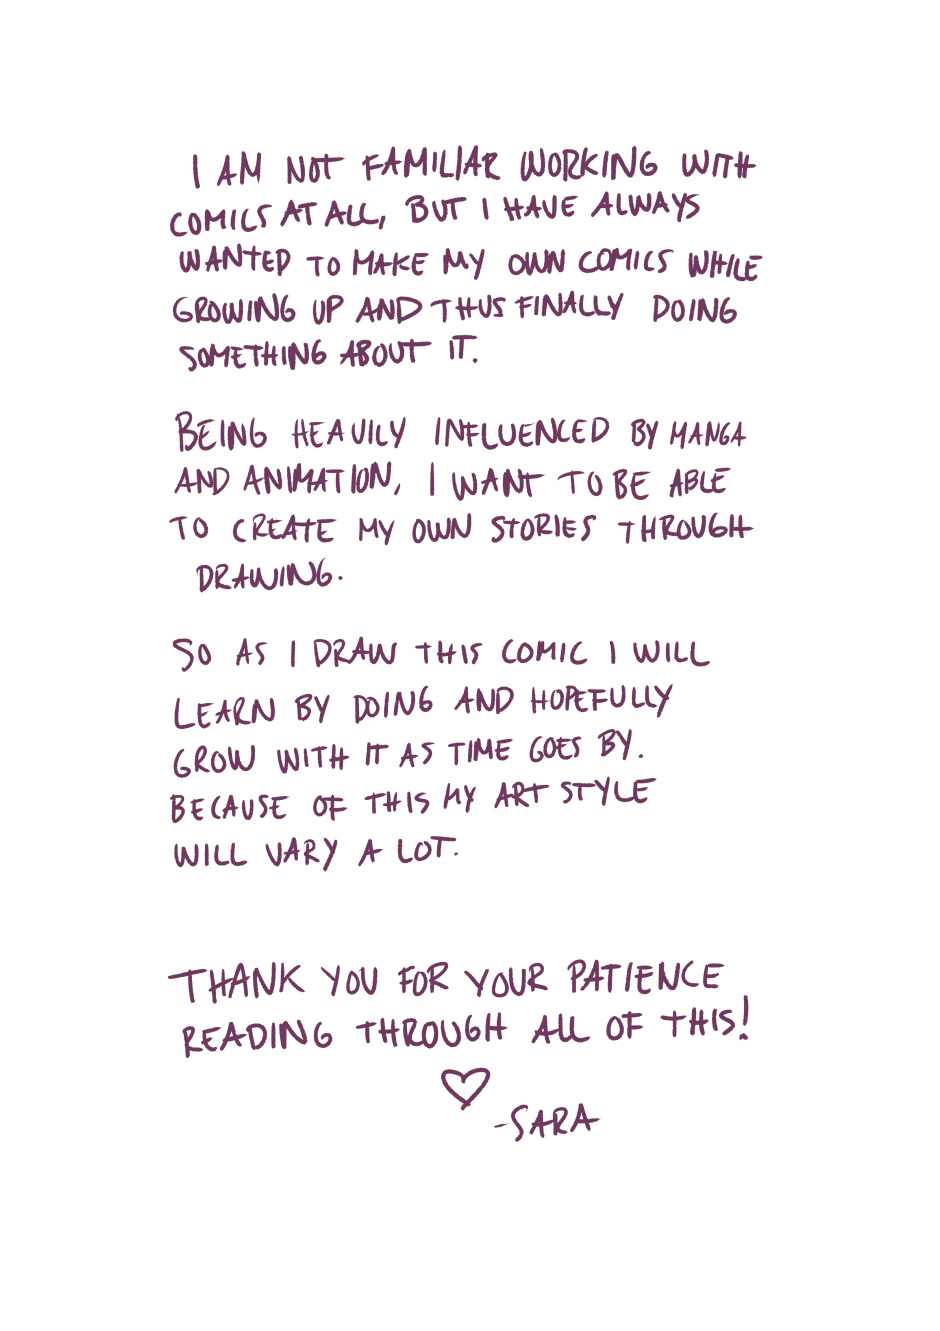 I AM NOT FAMILIAR WORKING WITH
COMICS AT ALL, BUT I HAVE ALWAYS
WANTED TO MAKE MY OWN COMICS WHILE
GROWING UP AND THUS FINALLY DOING
SOMETHING ABOUT IT.
BEING HEAVILY INFLUENCED BY MANGA
AND ANIMATION, I WANT TO BE ABLE
TO CREATE MY OWN STORIES THROUGH
DRAWING.
SO AS I DRAW THIS COMIC I WILL
LEARN BY DOING AND HOPEFULLY
GROW WITH IT AS TIME GOES BY.
BECAUSE OF THIS MY ART STYLE
WILL VARY A LOT.
THANK YOU FOR YOUR PATIENCE
READING THROUGH ALL OF THIS!
-SARA